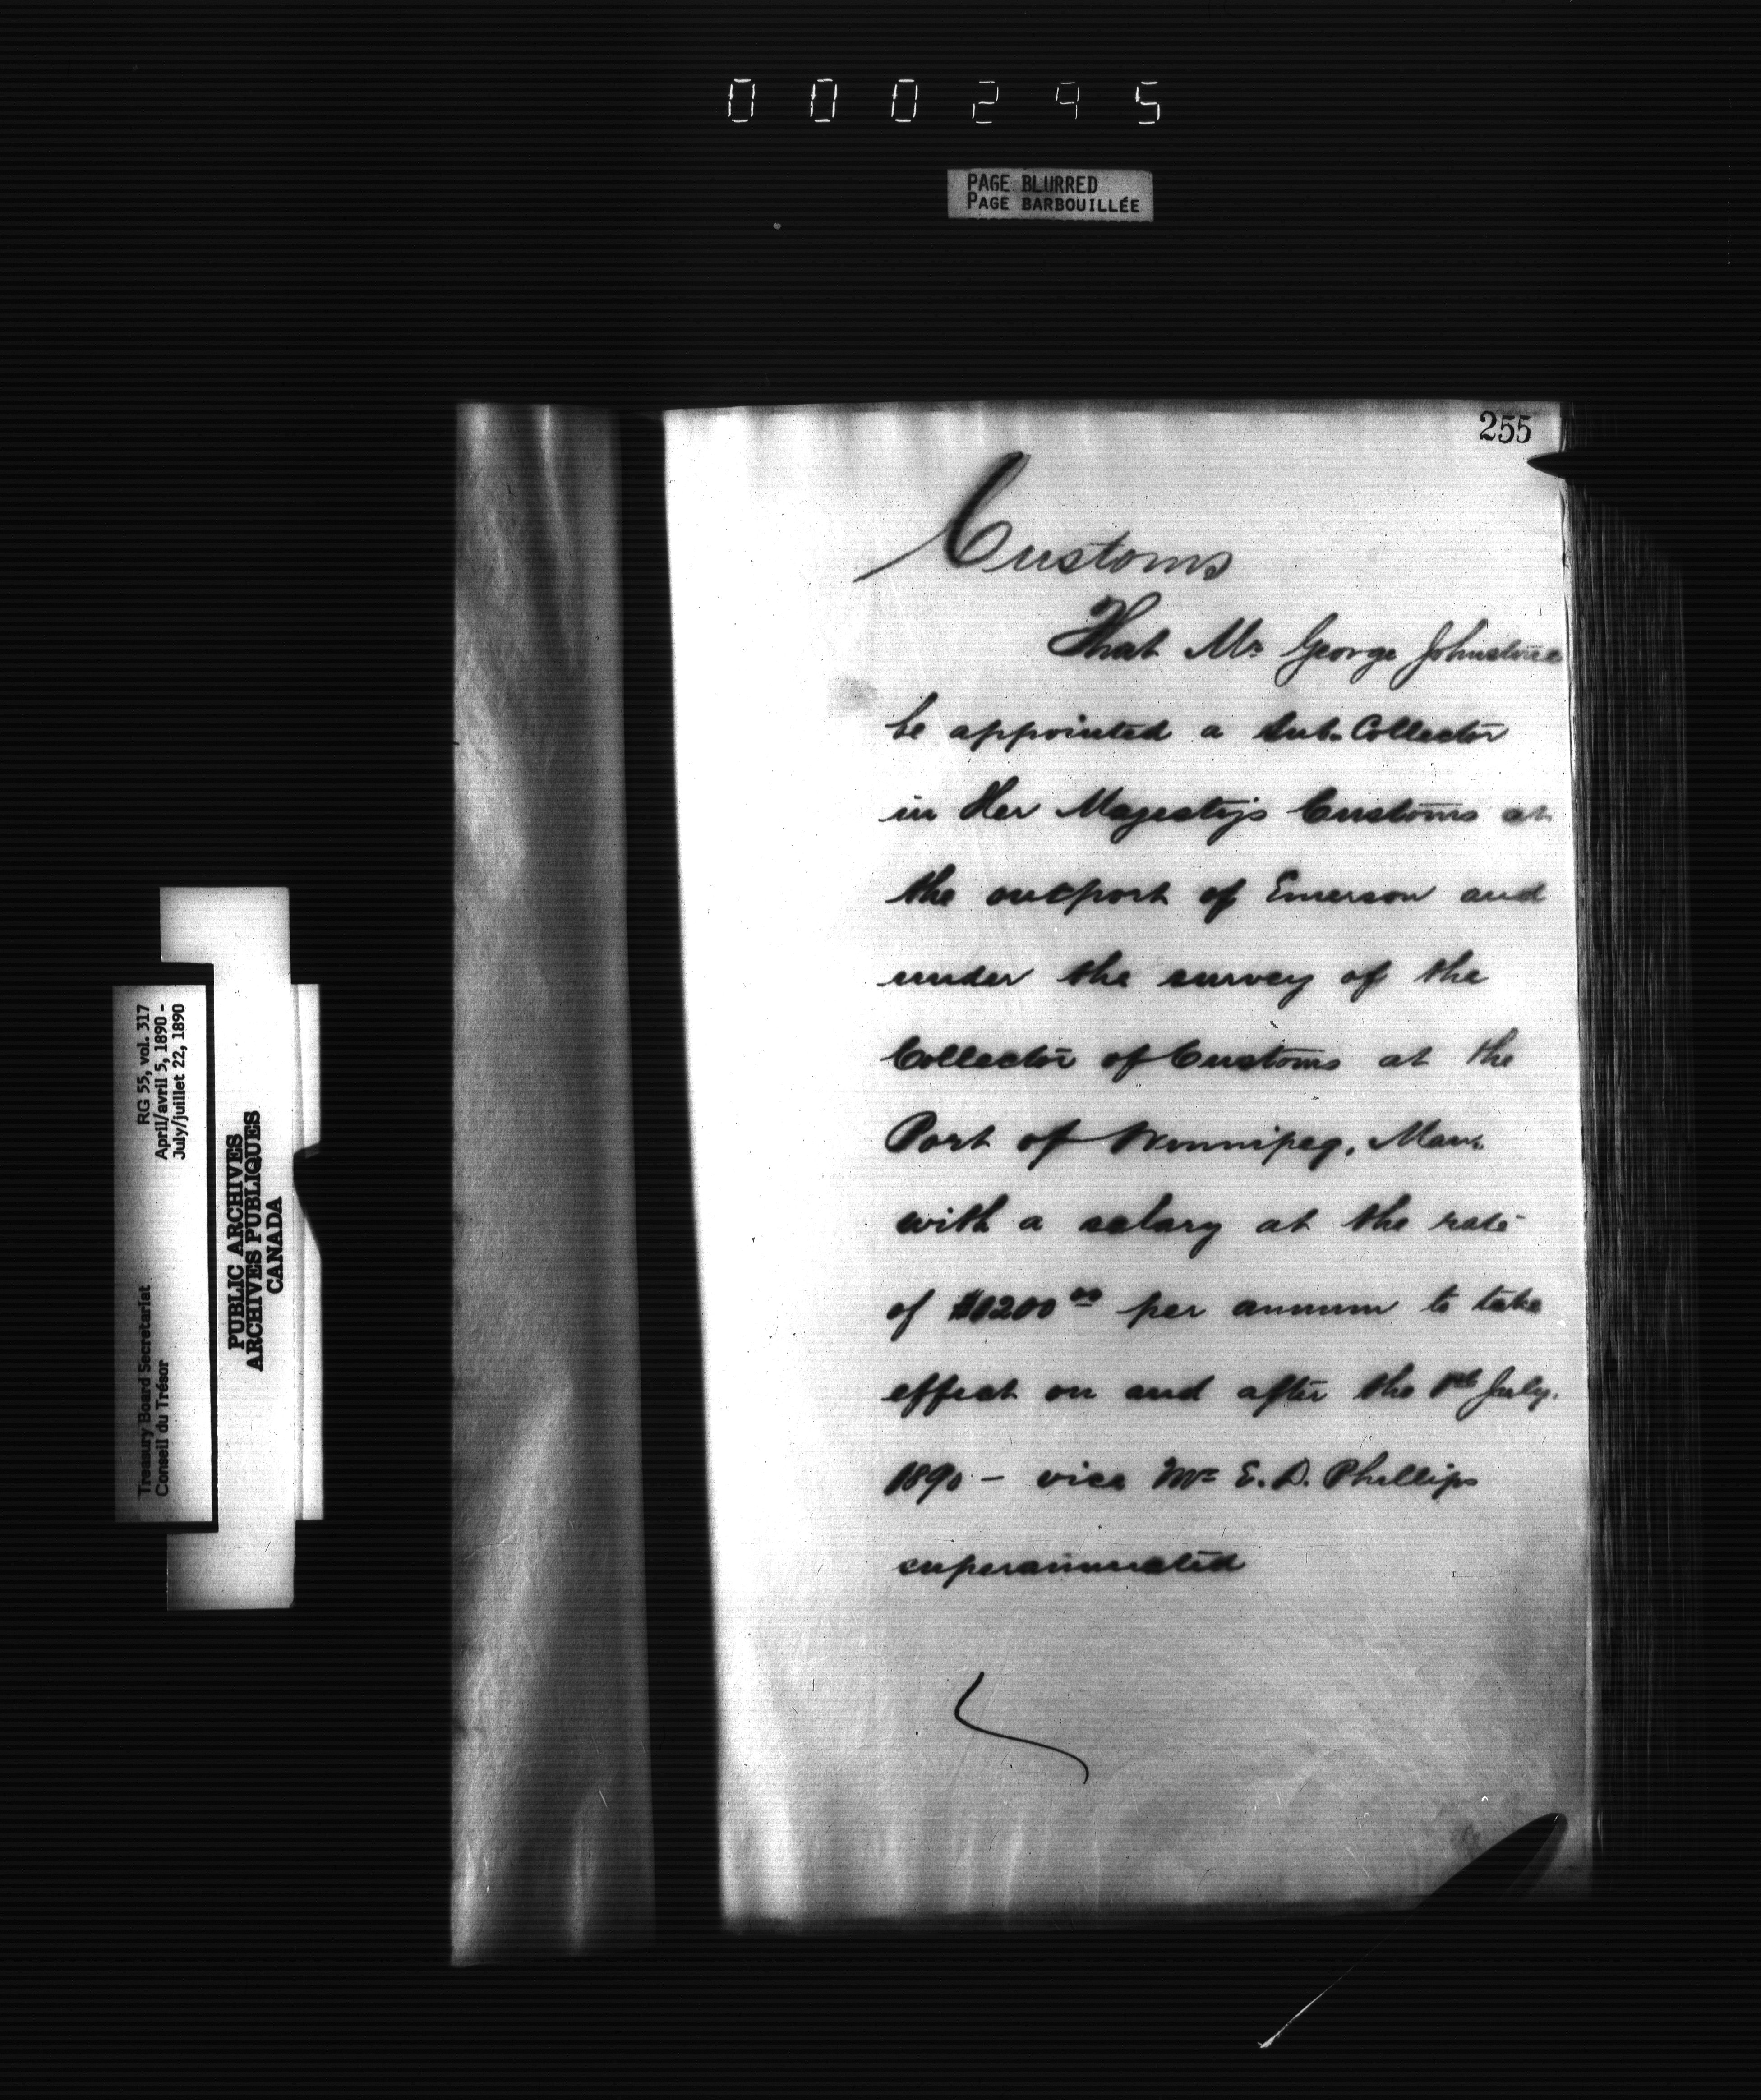 000295
PAGE BLURRED
PAGE BARBOUILLÉE
255
Customs
That Mr George Johnstone
be appointed a Sub-Collector
in Her Magesty's Customs at
the outport of Emerson and
under the survey of the
Collector of Customs at the
Port of Winnipeg, Man.
with a salary at the rate
of $1200 00 per annum to take
effect on and after the 1st July.
1890 - vice Mr E. D. Phillips
superannuated
Treasury Board Secretariat
Conseil du Trésor
RG 55, vol. 317
April/avril 5, 1890 -
July/juillet 22, 1890
PUBLIC ARCHIVES
ARCHIVES PUBLIQUES
CANADA